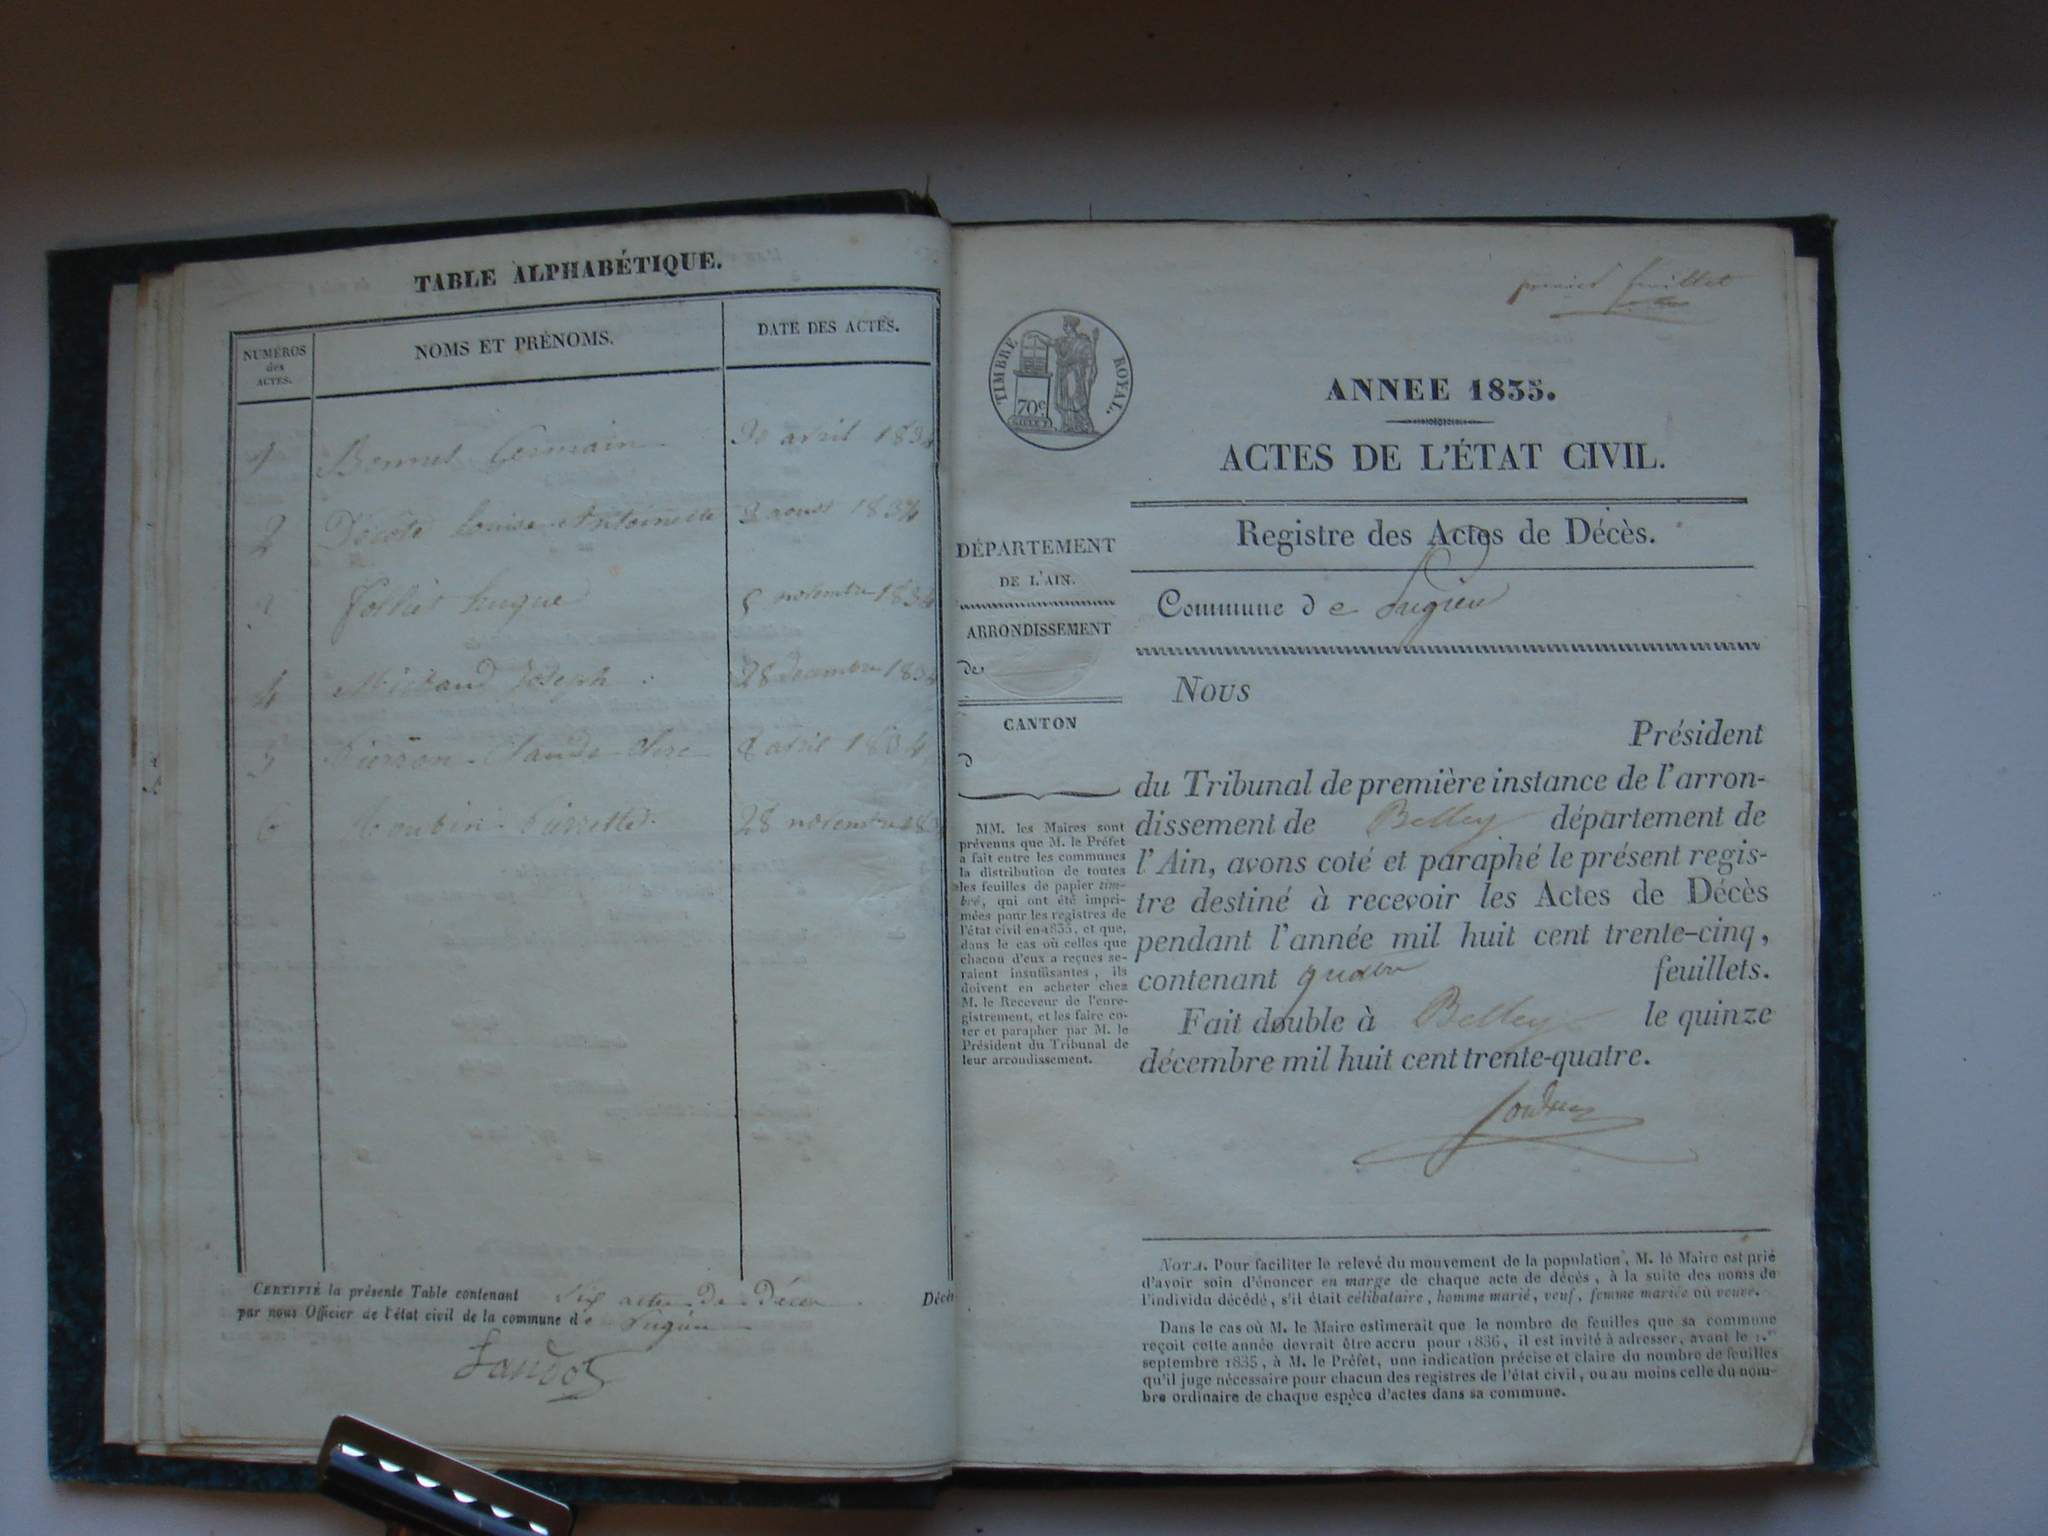 TABLE ALPHABÉTIQUE.
NUMÉROS
des
ACTES.
NOMS ET PRÉNOMS.
DATE DES ACTES.
1 Bonnet Germain avril 1834
2 Louise Antoinette 2 aoust 1834
novembre 1834
4 Michaud Joseph 28 decembre 1834
5 Pierron Claude avril 1834
6 28 novembre
CERTIFIÉ la présente Table contenant six actes de Décès
par nous Officier de l'état civil de la commune de Sugieu
Décès
premier feuillet
TIMBRE ROYAL.
70c
ANNEE 1835.
ACTES DE L'ÉTAT CIVIL.
Registre des Actes de Décès.
Commune de Sugieu
DÉPARTEMENT
DE L'AIN.
ARRONDISSEMENT
de
CANTON
d
MM. les Maires sont
prévenus que M. le Préfet
a fait entre les communes
la distribution de toutes
les feuilles de papier tim-
bré, qui ont été impri-
mées pour les registres de
l'état civil en 1835, et que,
dans le cas où celles que
chacun d'eux a reçues se-
raient insuffisantes, ils
doivent en acheter chez
M. le Receveur de l'enre-
gistrement, et les faire co-
ter et parapher par M. le
Président du Tribunal de
leur arrondissement.
Nous
Président
du Tribunal de première instance de l'arron-
dissement de Belley département de
l'Ain, avons coté et paraphé le présent regis-
tre destiné à recevoir les Actes de Décès
pendant l'année mil huit cent trente-cinq,
contenant quatre feuillets.
Fait double à Belley le quinze
décembre mil huit cent trente-quatre.
NOTA. Pour faciliter le relevé du mouvement de la population, M. le Maire est prié
d'avoir soin d'énoncer en marge de chaque acte de décès, à la suite des noms de
l'individu décédé, s'il était célibataire, homme marié, veuf, femme mariée ou veuve.
Dans le cas où M. le Maire estimerait que le nombre de feuilles que sa commune
reçoit cette année devrait être accru pour 1836, il est invité à adresser, avant le 1.er
septembre 1835, à M. le Préfet, une indication précise et claire du nombre de feuilles
qu'il juge nécessaire pour chacun des registres de l'état civil, ou au moins celle du nom-
bre ordinaire de chaque espèce d'actes dans sa commune.